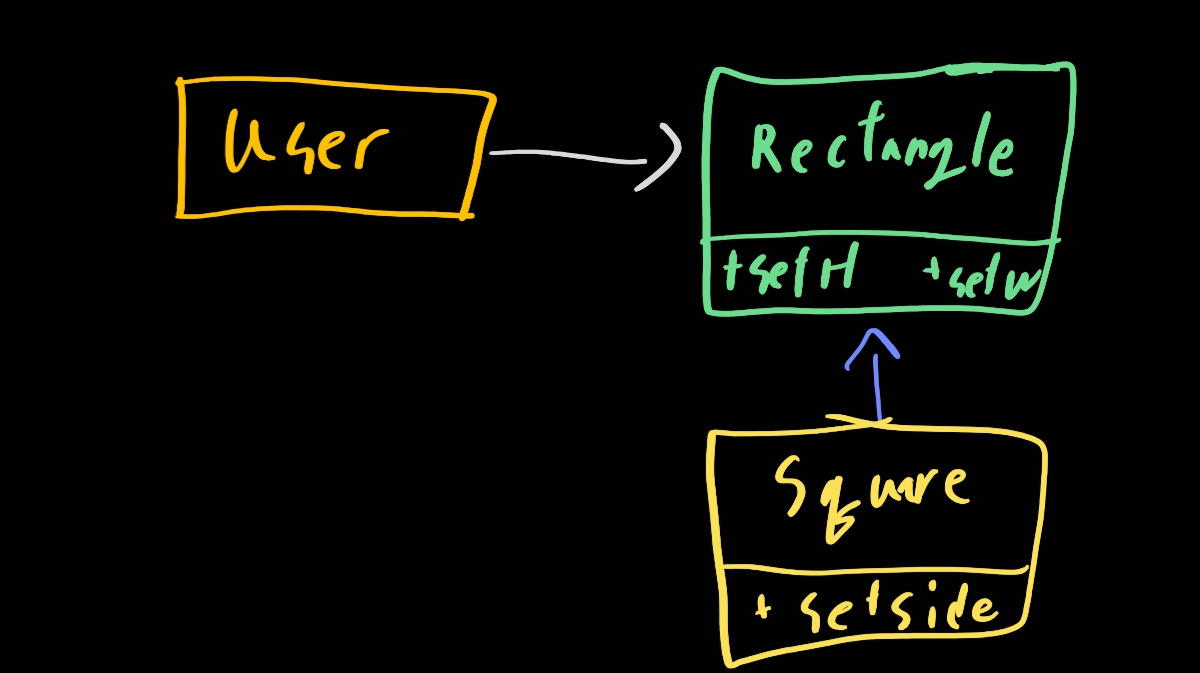 User
Rectangle
+setH +setW
Square
+ setside